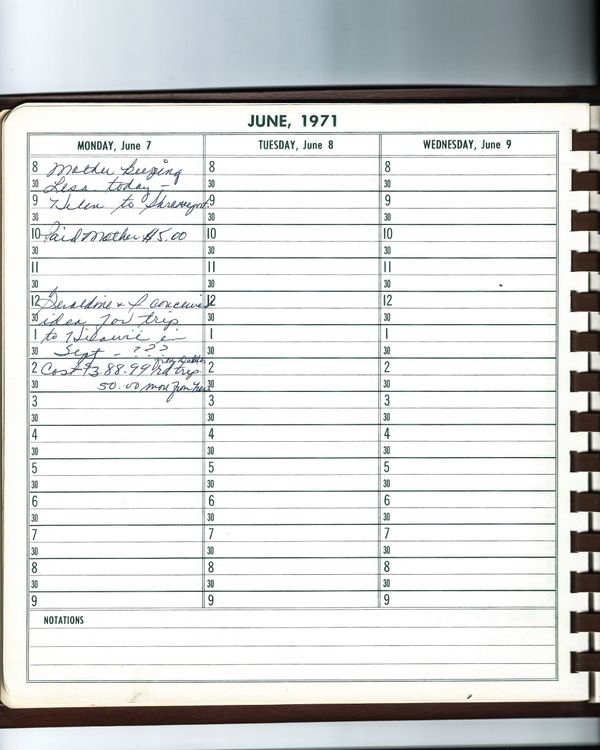 JUNE, 1971
MONDAY, June 7
TUESDAY, June 8
WEDNESDAY, June 9
8 Mother keeping
30 Lesa today -
9 Helen to Shreveport
30
10 Paid Mother $5.00
30
11
30
12 Geraldine & I conceived
30 idea for trip
1 to Hiawii in
30 Sept - ???
2 Cost $388.99 rd trip
from Dallas
30 50.00 more from here
3
30
4
30
5
30
6
30
7
30
8
30
9
8
30
9
30
10
30
11
30
12
30
1
30
2
30
3
30
4
30
5
30
6
30
7
30
8
30
9
8
30
9
30
10
30
11
30
12
30
1
30
2
30
3
30
4
30
5
30
6
30
7
30
8
30
9
NOTATIONS